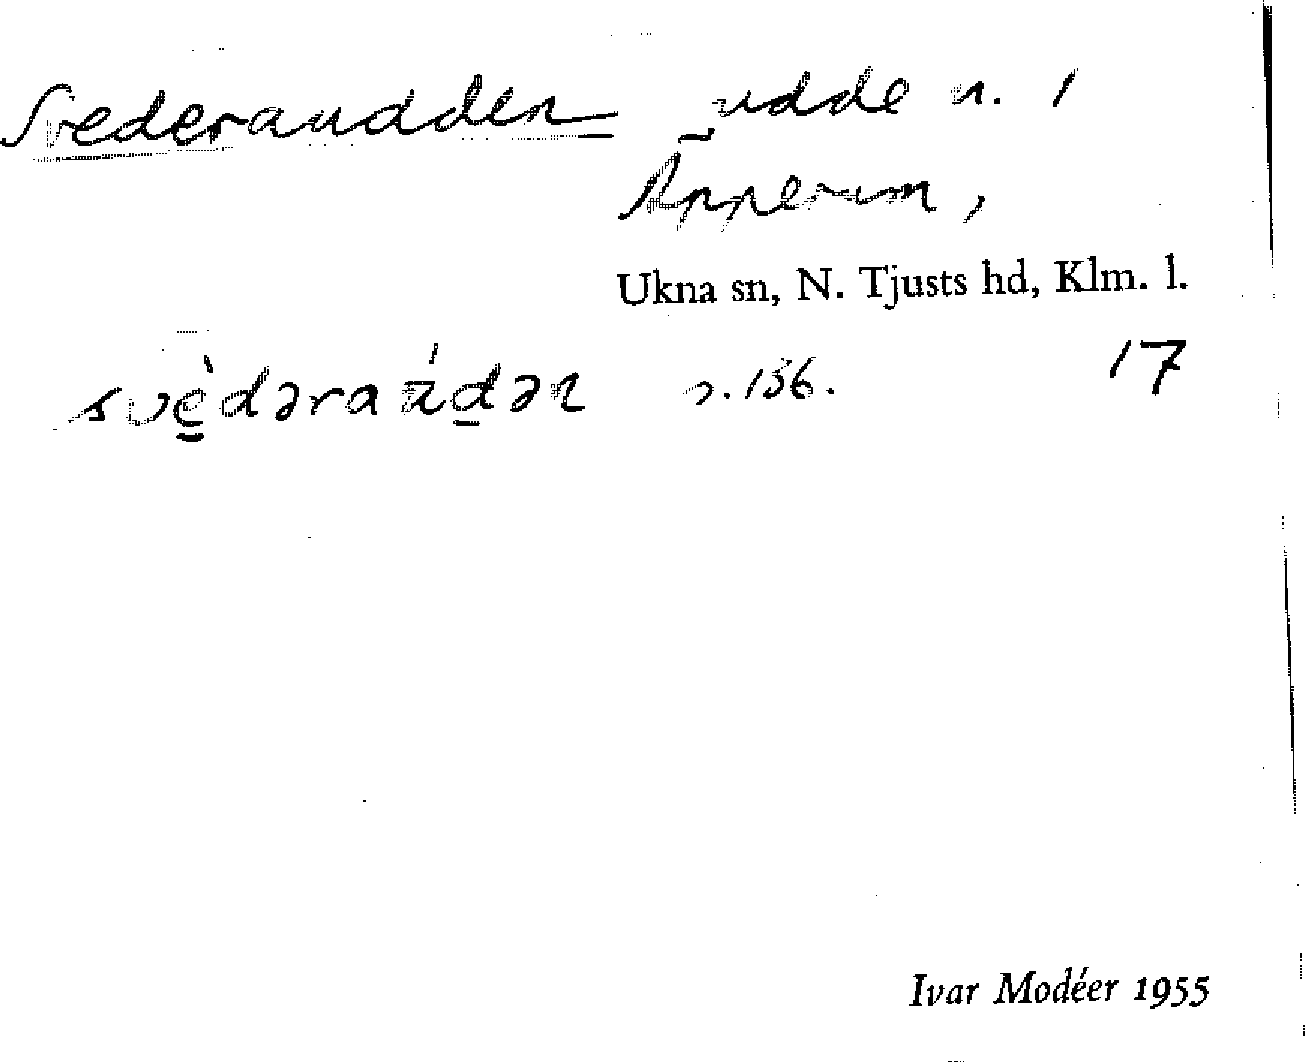 Svederaudden udde n. i
Äpperum,
Ukna sn, N. Tjusts hd, Klm. l.
svèdəraúdən s. 136. 17
Ivar Modéer 1955